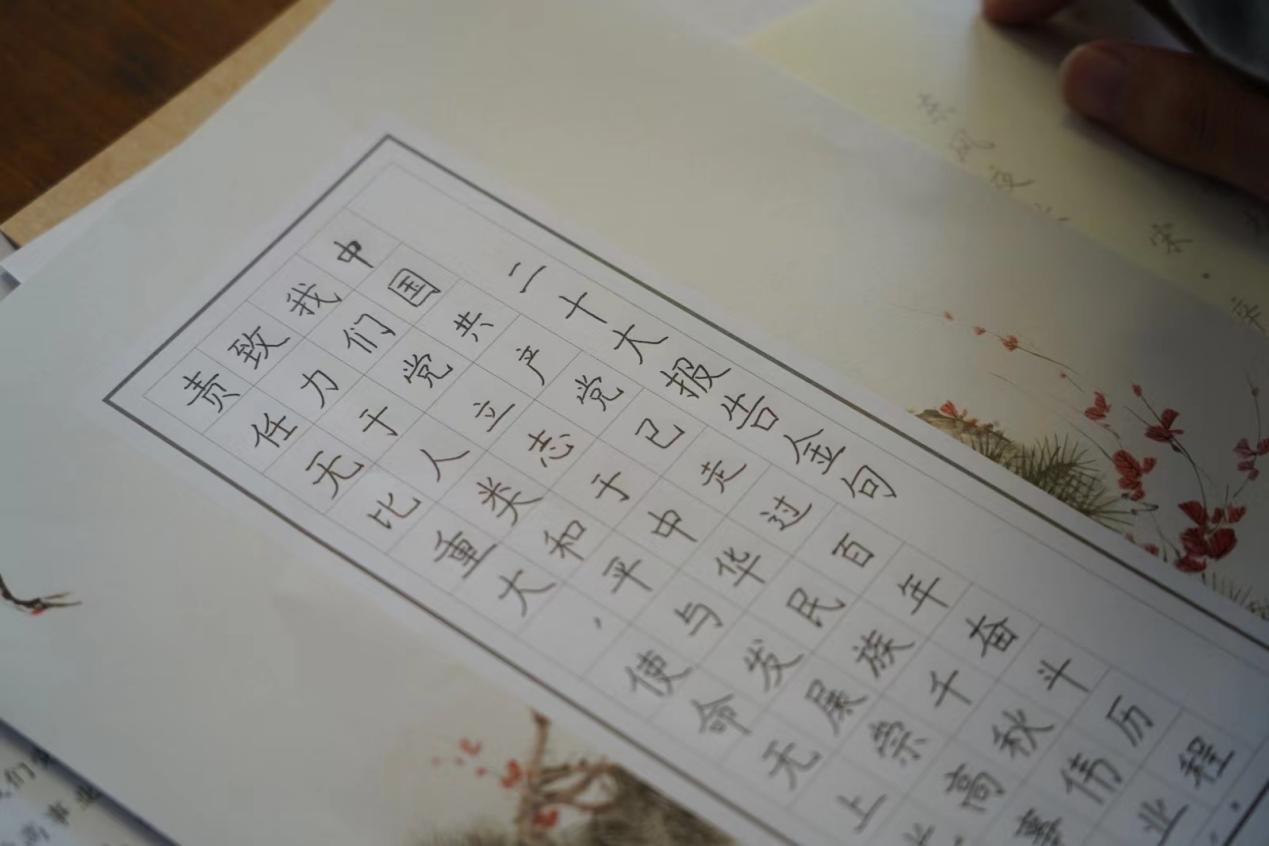 二十大报告金句
中国共产党已走过百年奋斗历程。
我们党立志于中华民族千秋伟业
致力于人类和平与发展崇高事
责任无比重大，使命无上
东风夜
宋·辛
们
高事业